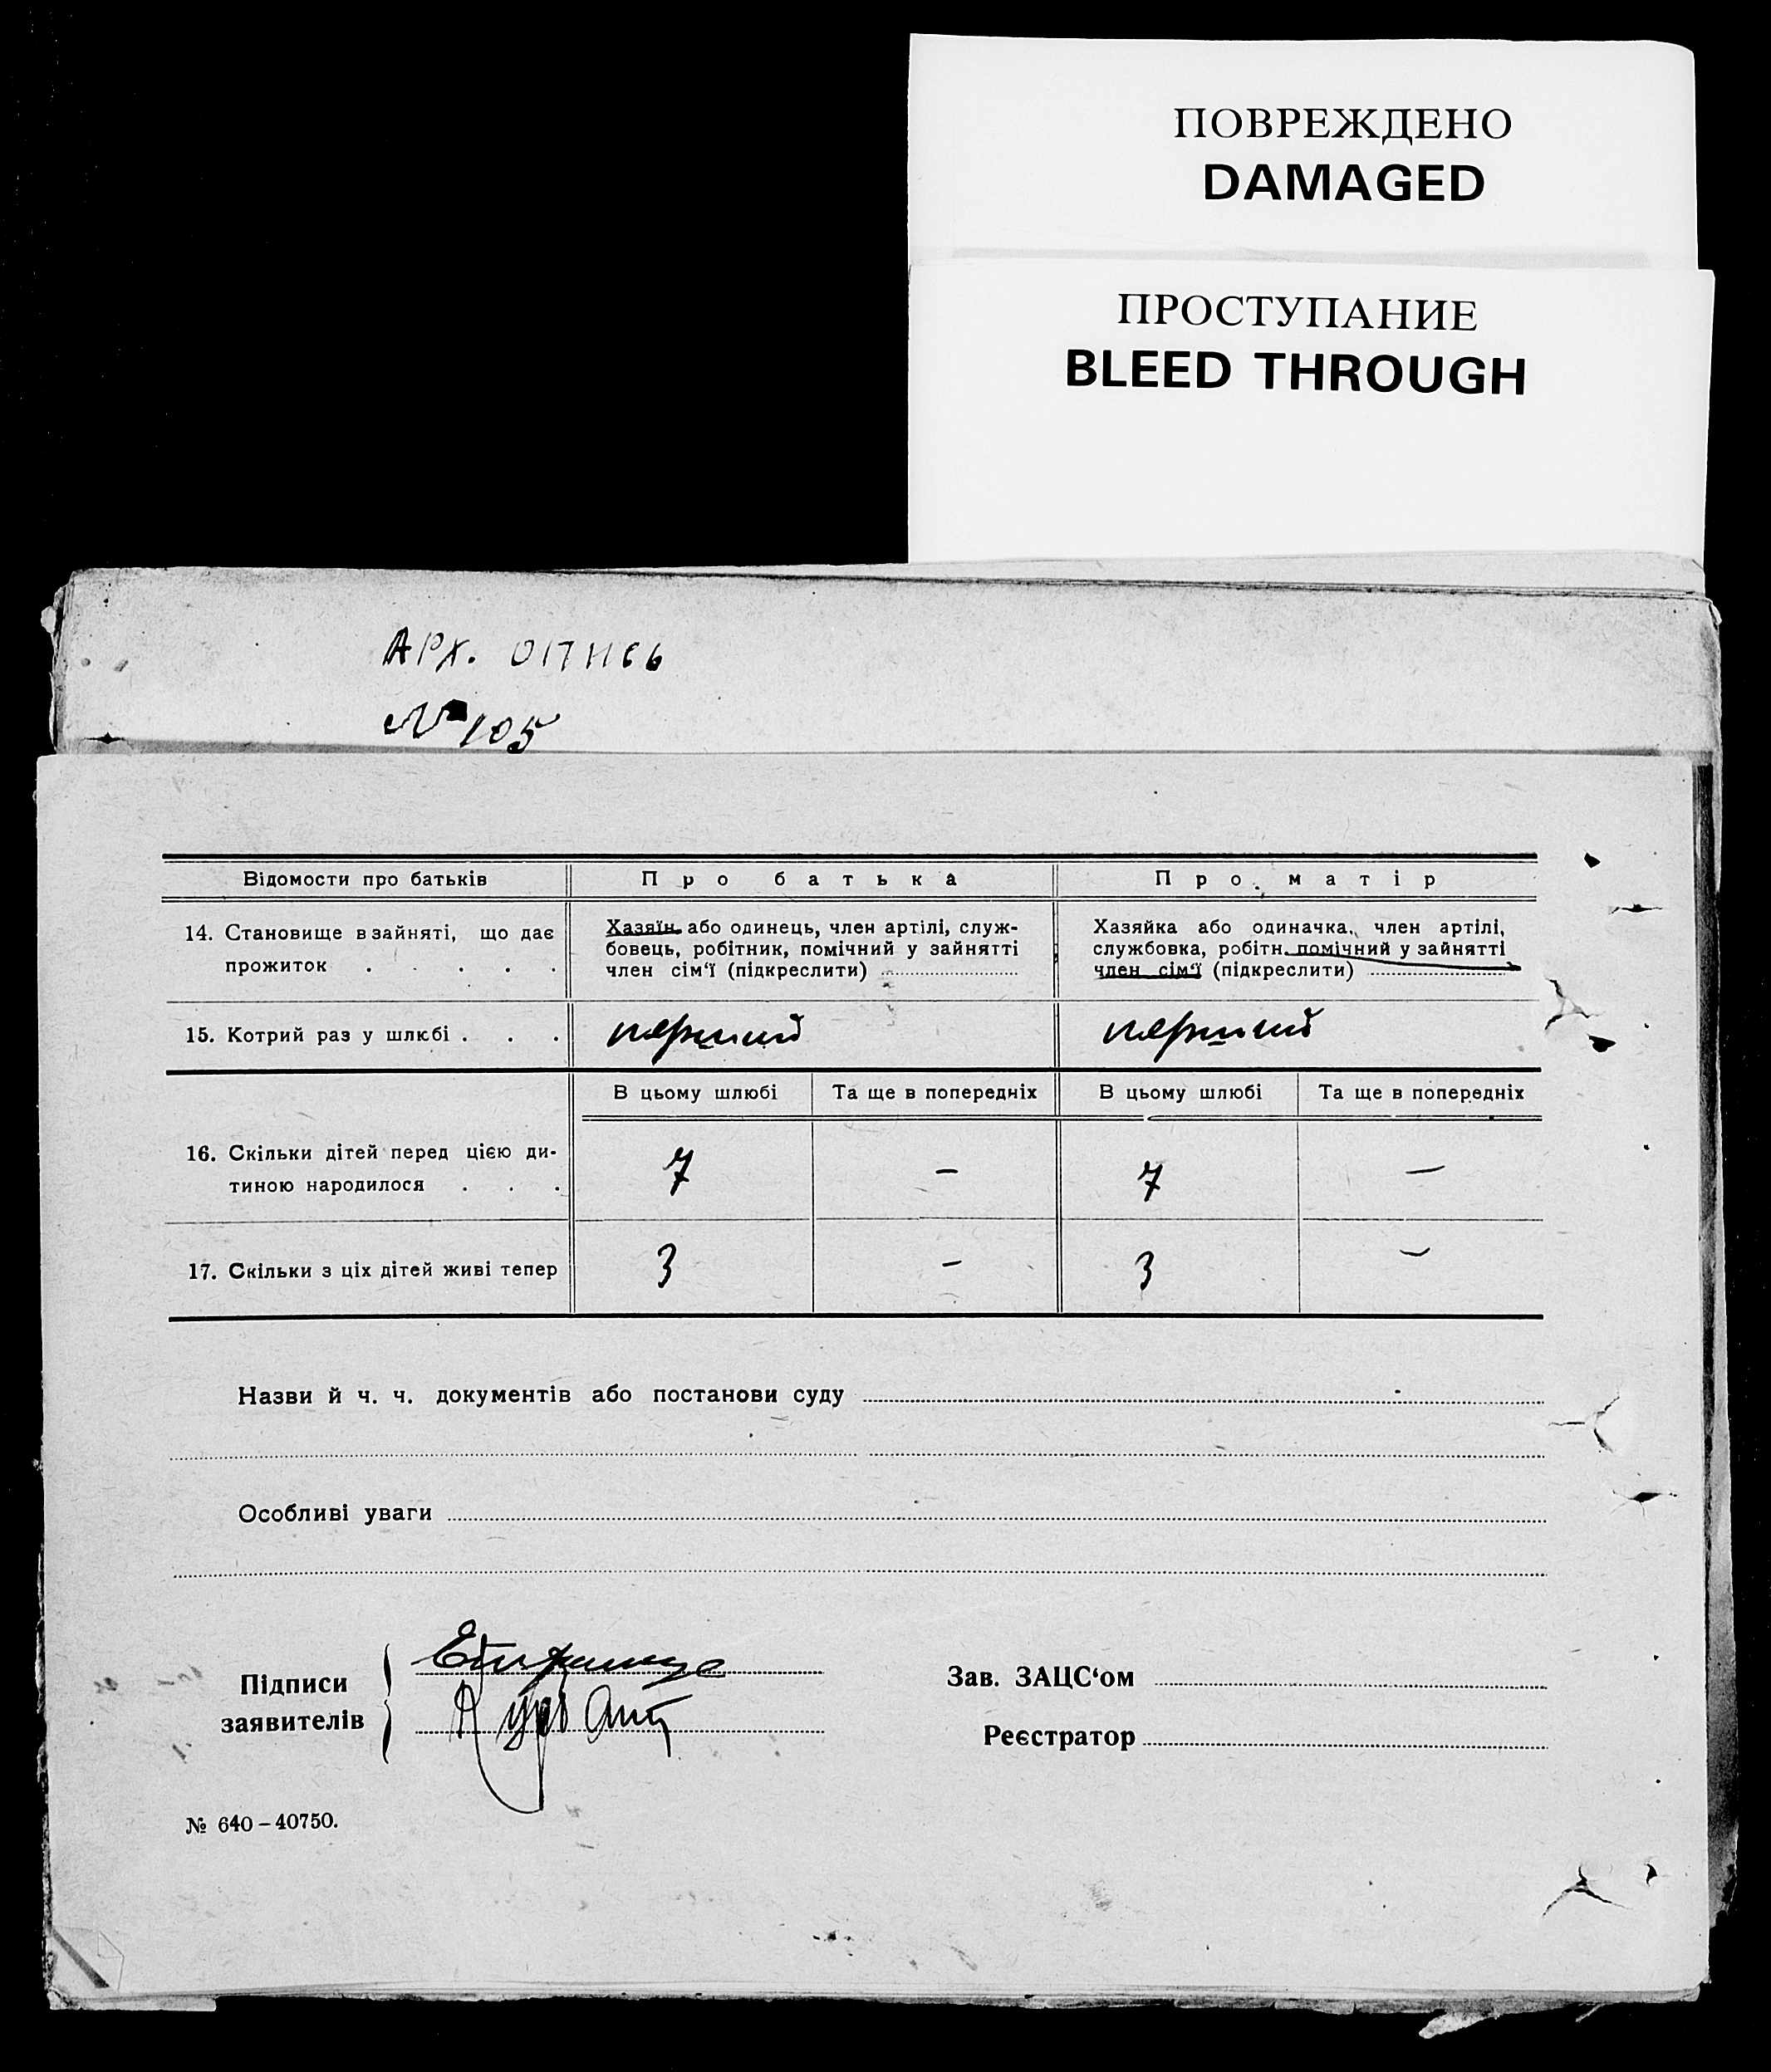 ПОВРЕЖДЕНО
DAMAGED
ПРОСТУПАНИЕ
BLEED THROUGH
АРХ. ОПИСЬ
№ 105
Відомости про батьків
Про батька
Про матір
14. Становище в зайняті, що дає
прожиток . . . . .
Хазяїн або одинець, член артілі, служ-
бовець, робітник, помічний у зайнятті
член сім‘ї (підкреслити)
Хазяйка або одиначка, член артілі,
службовка, робітн. помічний у зайнятті
член сім‘ї (підкреслити)
15. Котрий раз у шлюбі . . .
перший
перший
В цьому шлюбі
Та ще в попередніх
В цьому шлюбі
Та ще в попередніх
16. Скільки дітей перед цією ди-
тиною народилося . . .
7
–
7
–
17. Скільки з ціх дітей живі тепер
3
–
3
–
Назви й ч. ч. документів або постанови суду
Особливі уваги
Підписи
заявителів
Зав. ЗАЦС‘ом
Реєстратор
№ 640–40750.